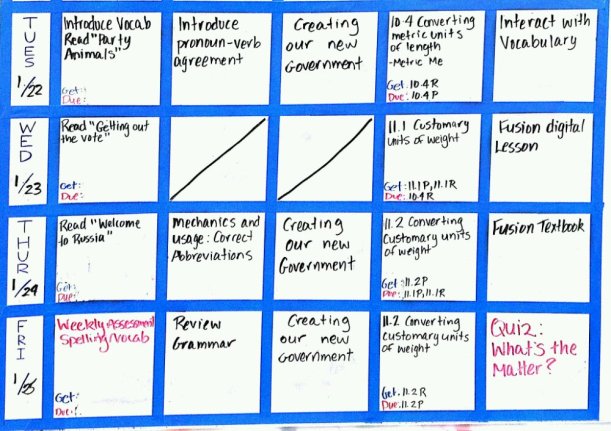 TUES
1/22
Introduce Vocab
Read "Party
Animals"
Get:
Due:
Introduce
pronoun-verb
agreement
Creating
our new
Government
10.4 Converting
metric units
of length
-Metric Me
Get: 10.4R
Due: 10.4P
Interact with
Vocabulary
WED
1/23
Read "Getting out
the vote"
Get:
Due:
11.1 Customary
units of weight
Get: 11.1P, 11.1R
Due: 10.4R
Fusion digital
Lesson
THUR
1/24
Read "Welcome
to Russia"
Get:
Due:
Mechanics and
usage: Correct
Abbreviations
Creating
our new
Government
11.2 Converting
Customary units
of weight
Get: 11.2P
Due: 11.1P, 11.1R
Fusion Textbook
FRI
1/25
Weekly Assessment
Spelling/Vocab
Get:
Due:
Review
Grammar
Creating
our new
Government
11.2 Converting
customary units
of weight
Get: 11.2R
Due: 11.2P
Quiz:
What's the
Matter?